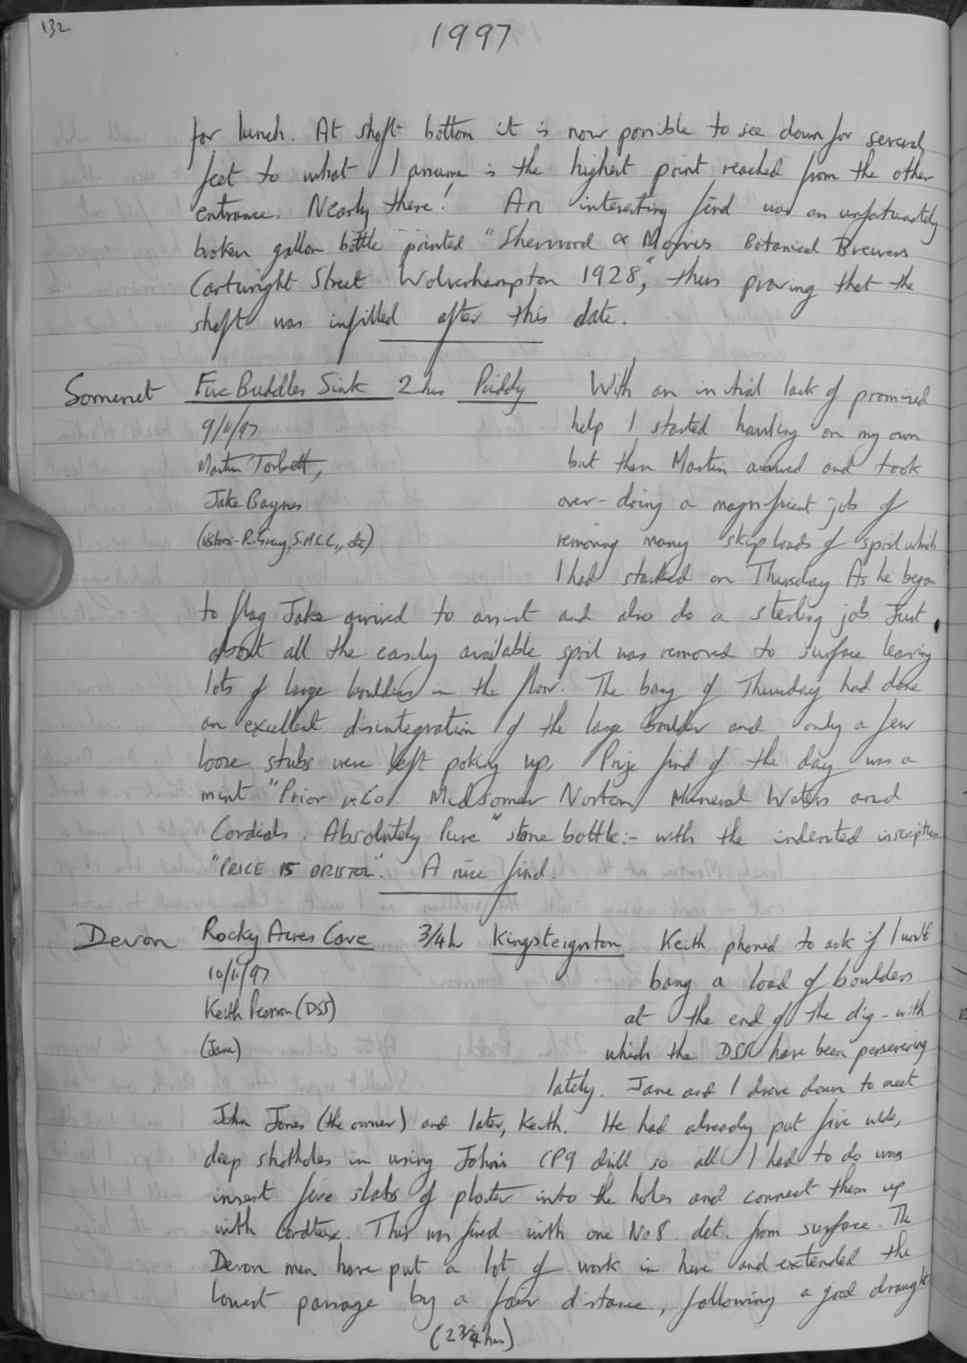 132
1997
for lunch. At shaft bottom it is now possible to see down for several
feet to what I assume is the highest point reached from the other
entrance. Nearly there! An interesting find was an unfortunately
broken gallon bottle printed "Sherwood & Morris Botanical Brewers
Cartwright Street Wolverhampton 1928", thus proving that the
shaft was infilled after this date.
Somerset Five Buddles Sink 2 hrs Priddy With an initial lack of promised
9/11/97 help I started hauling on my own
Martin Torbett, but then Martin arrived and took
Jake Baynes over - doing a magnificent job of
(visitors - R. Gray, S.M.C.C., etc) removing many skip loads of spoil which
I had stacked on Thursday. As he began
to flag Jake arrived to assist and also do a sterling job. Just
about all the easily available spoil was removed to surface leaving
lots of large boulders in the floor. The bang of Thursday had done
an excellent disintegration of the large boulder and only a few
loose stubs were left poking up. Prize find of the day was a
mint "Prior & Co Midsomer Norton Mineral Waters and
Cordials. Absolutely Pure" stone bottle:- with the indented inscription
"PRICE 15 BRISTOL". A nice find.
Devon Rocky Acres Cave 3/4h Kingsteignton Keith phoned to ask if I would
10/11/97 bang a load of boulders
Keith Pearson (DSS) at the end of the dig - with
(Jane) which the DSS have been persevering
lately. Jane and I drove down to meet
John Jones (the owner) and later, Keith. He had already put five wide,
deep shotholes in using John's CP9 drill so all I had to do was
insert five slabs of plaster into the holes and connect them up
with cordtex. This was fired with one No 8. det. from surface. The
Devon men have put a lot of work in here and extended the
lowest passage by a fair distance, following a good draught
(2 3/4 hrs)